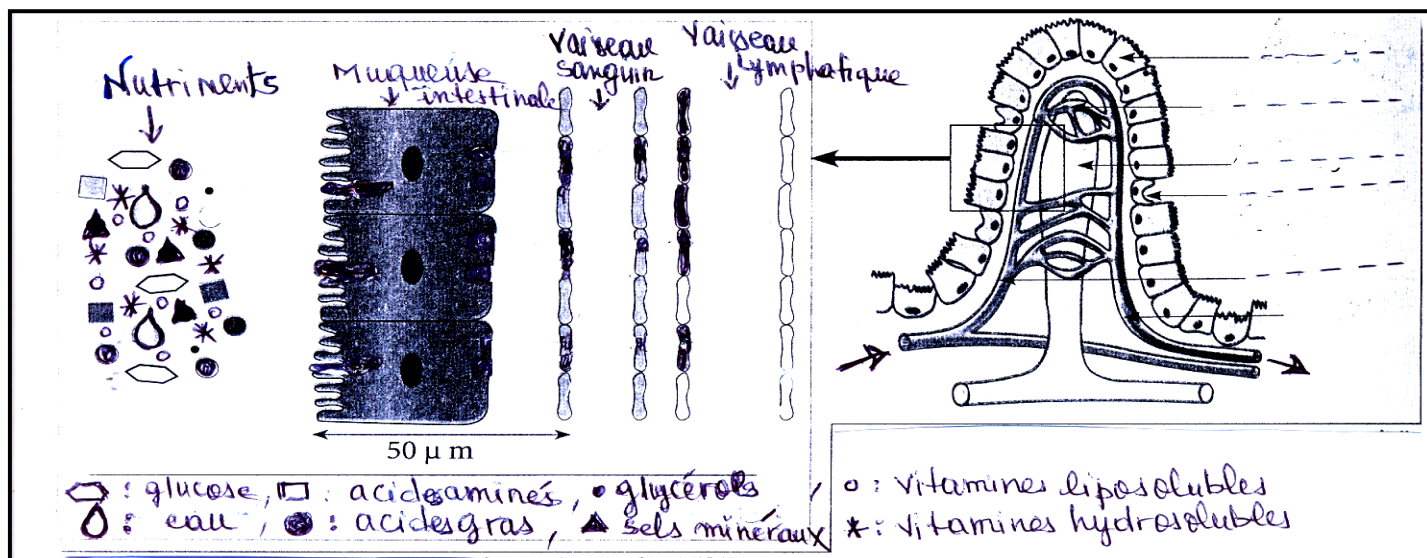 Nutriments
Muqueuse
intestinale
Vaisseau
sanguin
Vaisseau
lymphatique
50 µ m
: glucose, : acides aminés, : glycérols, : vitamines liposolubles
: eau, : acides gras, : sels minéraux, : vitamines hydrosolubles